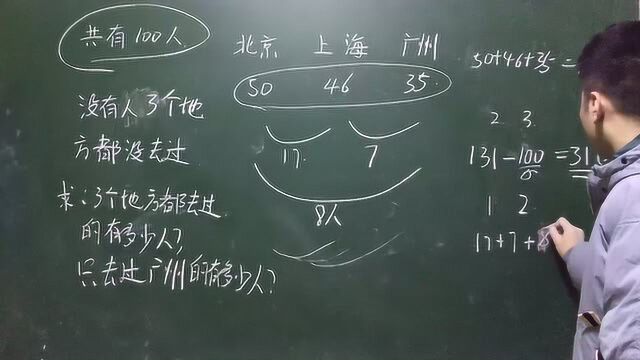 共有100人
北京 上海 广州
50 46 35
没有人3个地
方都没去过
17 7
8人
求:3个地方都去过
的有多少人?
只去过广州的有多少人?
50+46+35=
2 3
131-100=31
1 2
17+7+8